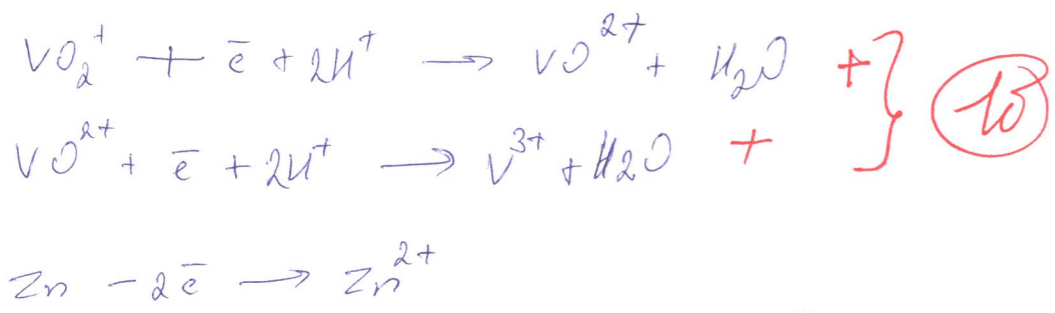 VO₂⁺ + ē + 2H⁺ → VO²⁺ + H₂O +
VO²⁺ + ē + 2H⁺ → V³⁺ + H2O +
Zn - 2ē → Zn²⁺